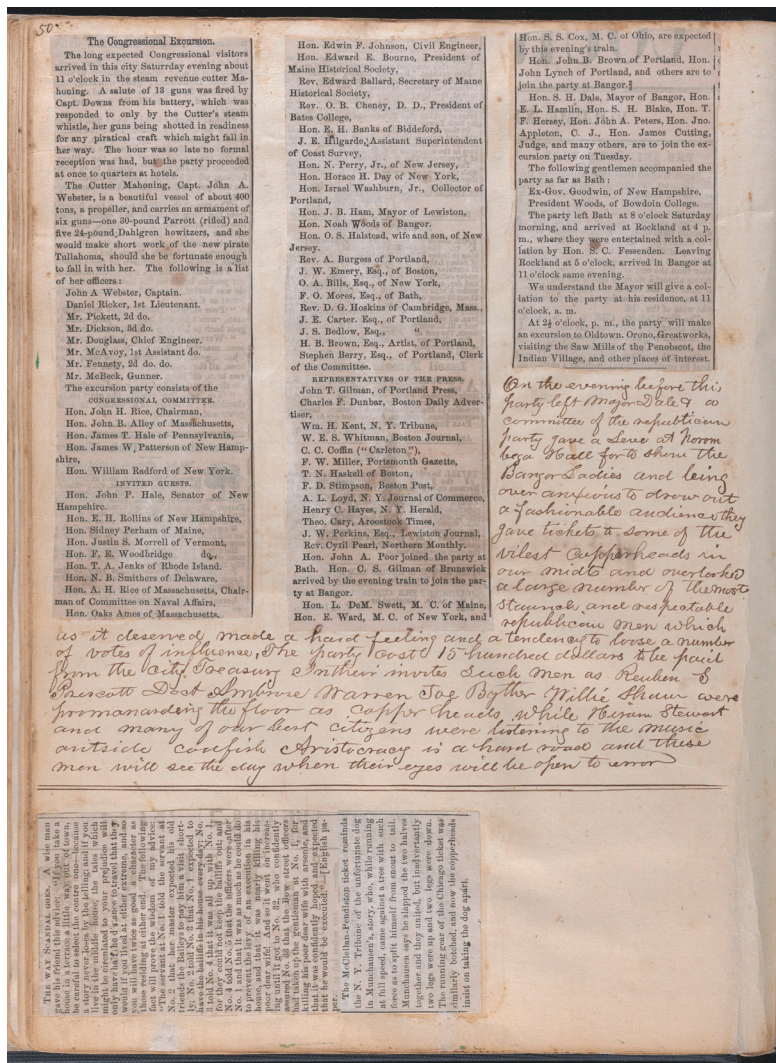 50
The Congressional Excursion.
The long expected Congressional visitors
arrived in this city Saturrday evening about
11 o'clock in the steam revenue cutter Ma-
honing. A salute of 13 guns was fired by
Capt. Downs from his battery, which was
responded to only by the Cutter's steam
whistle, her guns being shotted in readiness
for any piratical craft which might fall in
her way. The hour was so late no formal
reception was had, but the party proceeded
at once to quarters at hotels.
The Cutter Mahoning, Capt. John A.
Webster, is a beautiful vessel of about 400
tons, a propeller, and carries an armament of
six guns—one 30-pound Parrott (rifled) and
five 24-pound Dahlgren howitzers, and she
would make short work of the new pirate
Tullahoma, should she be fortunate enough
to fall in with her. The following is a list
of her officers:
John A Webster, Captain.
Daniel Ricker, 1st Lieutenant.
Mr. Pickett, 2d do.
Mr. Dickson, 3d do.
Mr. Douglass, Chief Engineer.
Mr. McAvoy, 1st Assistant do.
Mr. Fennety, 2d do. do.
Mr. McBeck, Gunner.
The excursion party consists of the
CONGRESSIONAL COMMITTEE.
Hon. John H. Rice, Chairman,
Hon. John B. Alley of Massachusetts,
Hon. James T. Hale of Pennsylvania,
Hon. James W. Patterson of New Hamp-
shire,
Hon. William Radford of New York.
INVITED GUESTS.
Hon. John P. Hale, Senator of New
Hampshire.
Hon. E. H. Rollins of New Hampshire,
Hon. Sidney Perham of Maine,
Hon. Justin S. Morrell of Vermont,
Hon. F. E. Woodbridge do.
Hon. T. A. Jenks of Rhode Island.
Hon. N. B. Smithers of Delaware,
Hon. A. H. Rice of Massachusetts, Chair-
man of Committee on Naval Affairs,
Hon. Oaks Ames of Massachusetts.
Hon. Edwin F. Johnson, Civil Engineer,
Hon. Edward E. Bourne, President of
Maine Historical Society,
Rev. Edward Ballard, Secretary of Maine
Historical Society,
Rev. O. B. Cheney, D. D., President of
Bates College,
Hon. E. H. Banks of Biddeford,
J. E. Hilgarde, Assistant Superintendent
of Coast Survey,
Hon. N. Perry, Jr., of New Jersey,
Hon. Horace H. Day of New York,
Hon. Israel Washburn, Jr., Collector of
Portland,
Hon. J. B. Ham, Mayor of Lewiston,
Hon. Noah Woods of Bangor.
Hon. O. S. Halstead, wife and son, of New
Jersey.
Rev. A. Burgess of Portland,
J. W. Emery, Esq., of Boston,
O. A. Bills, Esq., of New York,
F. O. Mores, Esq., of Bath,
Rev. D. G. Hoskins of Cambridge, Mass.,
J. E. Carter. Esq., of Portland,
J. S. Bedlow, Esq., "
H. B. Brown, Esq., Artist, of Portland,
Stephen Berry, Esq., of Portland, Clerk
of the Committee.
REPRESENTATIVES OF THE PRESS.
John T. Gilman, of Portland Press,
Charles F. Dunbar, Boston Daily Adver-
tiser,
Wm. H. Kent, N. Y. Tribune,
W. E. S. Whitman, Boston Journal,
C. C. Coffin ("Carleton"),
F. W. Miller, Portsmonth Gazette,
T. N. Haskell of Boston,
F. D. Stimpson, Boston Post,
A. L. Loyd, N. Y. Journal of Commerce,
Henry C. Hayes, N. Y. Herald,
Theo. Cary, Aroostook Times,
J. W. Perkins, Esq., Lewiston Journal,
Rev. Cyril Pearl, Northern Monthly.
Hon. John A. Poor joined the party at
Bath. Hon. C. S. Gilman of Brunswick
arrived by the evening train to join the par-
ty at Bangor.
Hon. L. DeM. Swett, M. C. of Maine,
Hon. E. Ward, M. C. of New York, and
Hon. S. S. Cox, M. C. of Ohio, are expected
by this evening's train.
Hon. John B. Brown of Portland, Hon.
John Lynch of Portland, and others are to
join the party at Bangor.
Hon. S. H. Dale, Mayor of Bangor, Hon.
E. L. Hamlin, Hon. S. H. Blake, Hon. T.
F. Hersey, Hon. John A. Peters, Hon. Jno.
Appleton, C. J., Hon. James Cutting,
Judge, and many others, are to join the ex-
cursion party on Tuesday.
The following gentlemen accompanied the
party as far as Bath:
Ex-Gov. Goodwin, of New Hampshire,
President Woods, of Bowdoin College.
The party left Bath at 8 o'clock Saturday
morning, and arrived at Rockland at 4 p.
m., where they were entertained with a col-
lation by Hon. S. C. Fessenden. Leaving
Rockland at 5 o'clock, arrived in Bangor at
11 o'clock same evening.
We understand the Mayor will give a col-
lation to the party at his residence, at 11
o'clock, a. m.
At 2½ o'clock, p. m., the party will make
an excursion to Oldtown, Orono, Greatworks,
visiting the Saw Mills of the Penobscot, the
Indian Village, and other places of interest.
On the evening before this
party left Major Dale & a
committee of the republican
party gave a Leve at Norom
bega Hall for to show the
Bangor Ladies and being
over anxious to drow out
a fashionable audience they
gave tickets to some of the
vilest Copperheads in
our midts and overlooked
a large number of the most
staunch and respectable
republican men which
as it deserved made a hard feeling and a tendency to loose a number
of votes of influence, The party cost 15 hundred dollars to be paid
from the city Treasury In their invites such men as Reuben S
Prescott Doct Ambrose Warren Joe Byther Willie Shaw were
promanarding the floor as copper heads while Hiram Stewart
and many of our best citizens were listening to the music
outside codfish Aristocracy is a hard road and these
men will see the day when their eyes will be open to error
THE WAY SCANDAL GOES. A wise man
gave his friend this advice: "If you take a
house in a terrace a little way out of town,
be careful to select the centre one—because
a story never loses by the telling; and if you
live in the middle house, the tales which
might be circulated to your prejudice will
only have half the distance to travel that they
would if you lived at either extreme, and so
you will have twice as good a character as
those residing at either end. The following
fact will prove the wisdom of my advice:
"The servant at No. 1 told the servant at
No. 2 that her master expected his old
friends the Baileys to pay him a visit short-
ly; No. 2 told No. 3 that No. 1 expected to
have the bailiffs in his house every day; No.
3 told No. 4 that it was all up with No. 1,
for they could not keep the bailiffs out; and
No. 4 told No. 5 that the officers were after
No. 1 and that it was as much as he could do
to prevent the levy of an execution in his
house, and that it was nearly killing his
poor dear wife! And so it went on increas-
ing until it got to No. 32, who confidently
assured No. 33 that the Bow street officers
had taken up the gentleman at No. 1, for
killing his poor dear wife with arsenic, and
that it was confidently hoped and expected
that he would be executed!"—[English pa-
per.
The McClellan-Pendleton ticket reminds
the N. Y. Tribune of the unfortunate dog
in Munchausen's, story, who, while running
at full speed, came against a tree with such
force as to split himself from snout to tail.
Munchausen says he slapped the two halves
together and they united, but inadvertantly
two legs were up and two legs were down.
The running gear of the Chicago ticket was
similarly botched, and now the copperheads
insist on taking the dog apart.